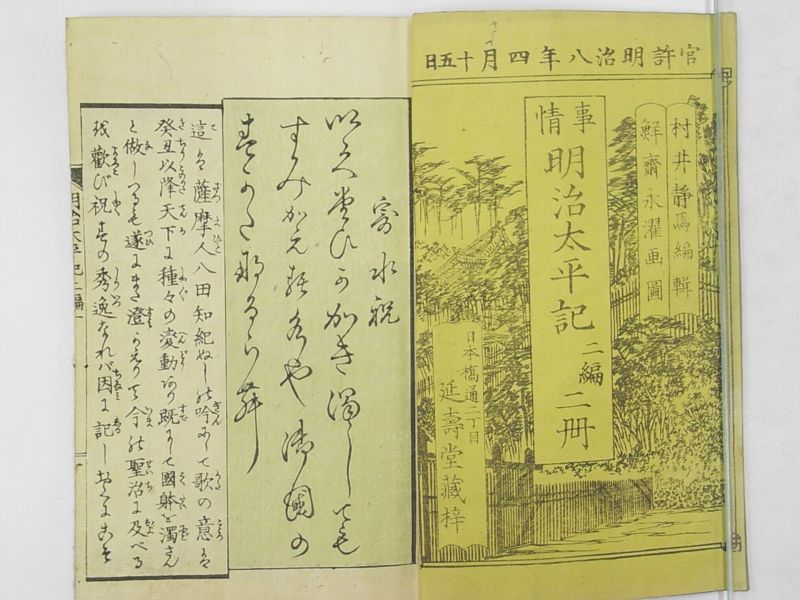 官許明治八年四月十五日
村井静馬編輯
鮮齋永濯画圖
事情
明治太平記 二編 二冊
日本橋通二丁目
延壽堂藏梓
寄水祝
這ハ薩摩人八田知紀ぬしの吟にして歌の意ハ
癸丑以降天下に種々の変動あり既にして國躰を濁さん
と做しつるも遂にまた澄かえりて今の聖治に及べる
を歡び祝すの秀逸なれバ因に記し
明治太平記二編